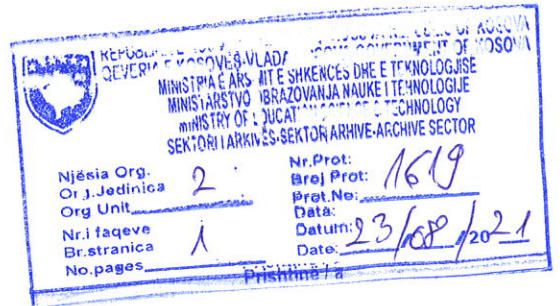 REPUBLIKA E KOSOVA REPUBLIC OF KOSOVA
QEVERIA E KOSOVËS-VLADA GOVERNMENT OF KOSOVA
MINISTRIA E ARSIMIT E SHKENCËS DHE E TEKNOLOGJISË
MINISTARSTVO OBRAZOVANJA NAUKE I TEHNOLOGIJE
MINISTRY OF EDUCATION SCIENCE & TECHNOLOGY
SEKTORI I ARKIVËS-SEKTOR ARHIVE-ARCHIVE SECTOR
Njësia Org.
Org.Jedinica 2
Org Unit
Nr.i faqeve
Br.stranica 1
No.pages
Nr.Prot:
Broj Prot: 1619
Prot.No:
Data:
Datum: 23/08/2021
Date:
Prishtinë / a